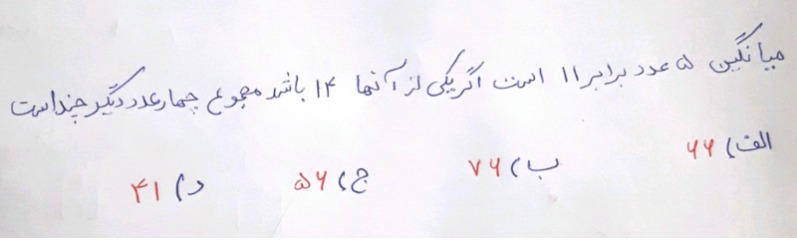 میانگین ۵ عدد برابر ۱۱ است اگر یکی از آنها ۱۴ باشد مجموع چهار عدد دیگر چند است
الف) ۶۶ ب) ۷۶ ج) ۵۶ د) ۴۱